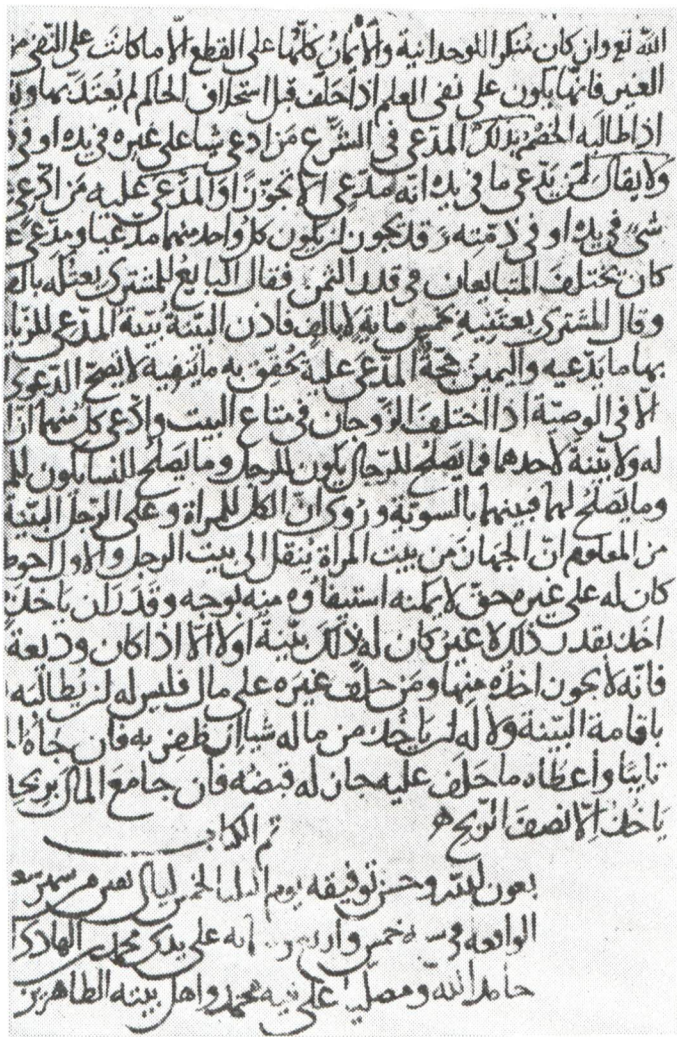 الله تع وان كان منكرا للوحدانية والأيمان كلها على القطع الا ما كانت على النفي
الغير فانها يكون على نفي العلم اذا حلف قبل استحلاف الحاكم لم يعتد بها
اذا طالبه الخصم بذلك المدعي في الشرع من ادعى شيا على غيره في يده او في
ولا يقال لمن يدعي ما في يده انه مدعي الا تجوزا والمدعى عليه من ادعى
شي في يده او في ذمته وقد يجوز ان يكون كل واحد منهما مدعيا ومدعى
كان يختلف المتبايعان في قدر الثمن فقال البايع للمشتري بعتكه
وقال المشتري بعتنيه بخمس ماية لا بالف فاذن البينة بينة المدعي
بها ما يدعيه واليمين حجة المدعى عليه يحقق به ما ينفيه لا تصح الدعوى
الا في الوصية اذا اختلف الزوجان في متاع البيت وادعى كل منهما ان
له ولا بينة لاحدهما فما يصلح للرجال يكون للرجل وما يصلح للنسا يكون
وما يصلح لهما فبينهما بالسوية وروي ان الكل للمراة وعلى الرجل البينة
من المعلوم ان الجهاز من بيت المراة ينقل الى بيت الرجل والاول احوط
كان له على غيره حق لا يمكنه استيفاوه منه بوجه وقدر ان ياخذ
اخذ بقدر ذلك لا غير كان له لذلك بينة او لا الا اذا كان وديعة
فانه لا يجوز اخذه منها ومن حلف غيره على مال فليس له ان يطالبه
باقامة البينة ولا له ان ياخذ من ماله شيا ان ظفر به فان جاه
تايبا واعطاه ما حلف عليه جاز له قبضه فان جا مع المال بربح
ياخذ الا نصف الربح
تم الكتاب
بعون الله وحسن توفيقه يوم الخمس ليال من شهر
الواقعه في سنه خمس واربع على يد محمد
حامدا لله ومصليا على نبيه محمد واهل بيته الطاهرين